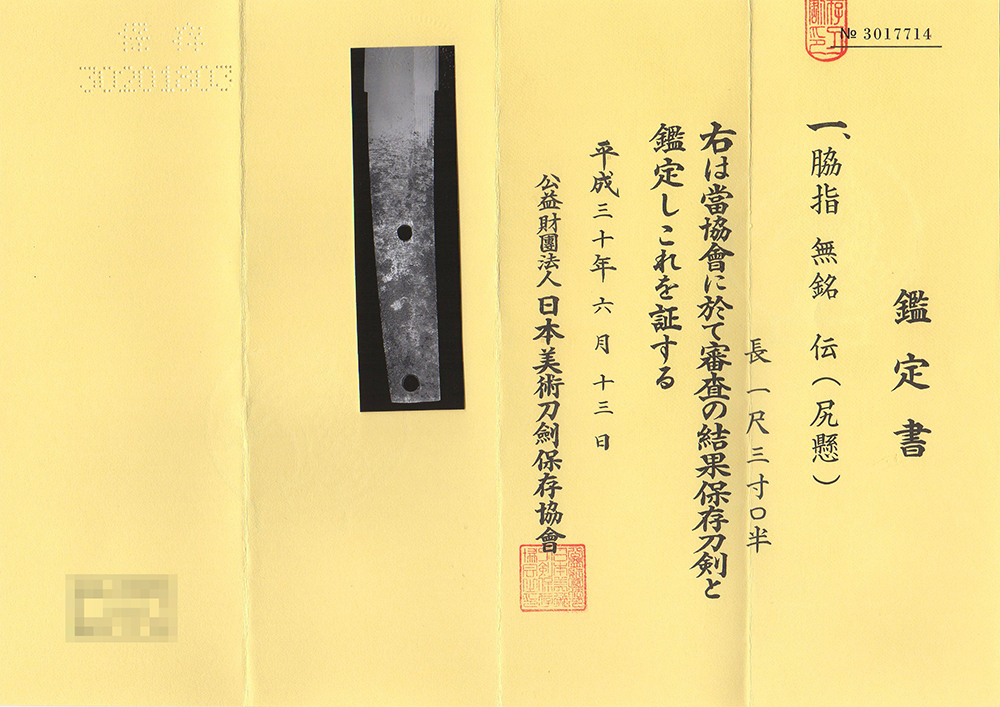 № 3017714
鑑定書
一、脇指 無銘 伝(尻懸)
長一尺三寸〇半
右は當協會に於て審査の結果保存刀剣と
鑑定しこれを証する
平成三十年六月十三日
公益財團法人日本美術刀劍保存協會
保存
30201803